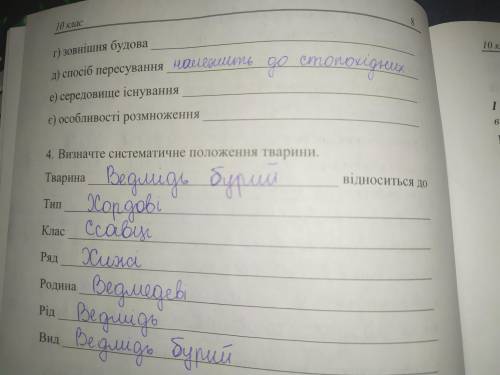 10 клас 8
г) зовнішня будова
д) спосіб пересування належить до стопохідних
е) середовище існування
є) особливості розмноження
4. Визначте систематичне положення тварини.
Тварина Ведмідь бурий відноситься до
Тип Хордові
Клас Ссавці
Ряд Хижі
Родина Ведмедеві
Рід Ведмідь
Вид Ведмідь бурий
10 к